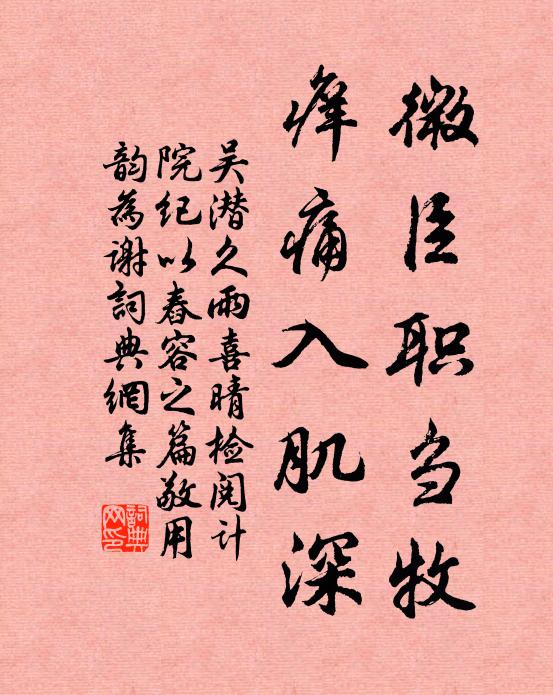 微臣职刍牧
痒痛入肌深
吴潜久雨喜晴检阅计
院纪以舂容之篇敬用
韵為谢詞典網集
詞典
网印